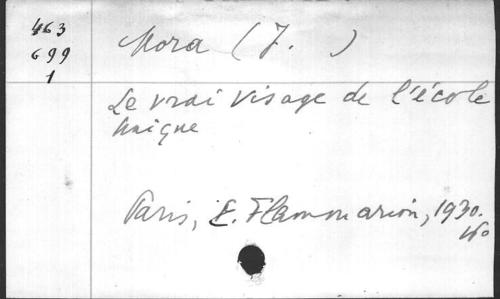 463
699
1
Mora (J. )
Le vrai visage de l'école
unique
Paris, E. Flammarion, 1930.
16°